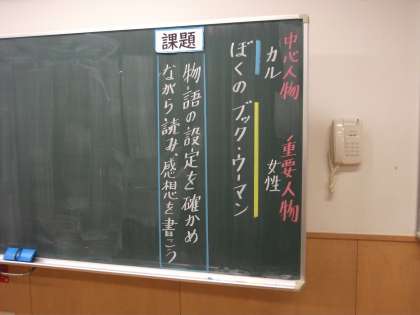 中心人物 重要人物
カル 女性
ぼくの ブック・ウーマン
課題
物語の設定を確かめ
ながら読み、感想を書こう